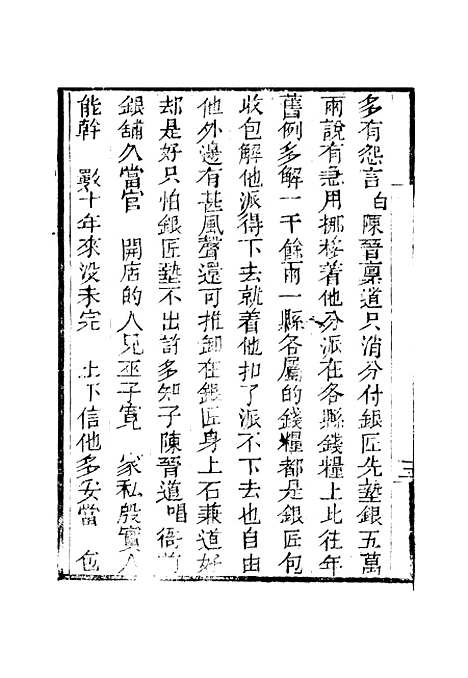 多有怨言 白 陳晉稟道只消分付銀匠先墊銀五萬
兩說有急用挪移着他分派在各縣錢糧上比往年
舊例多解一千餘兩一縣各屬的錢糧都是銀匠包
收包解他派得下去就着他扣了派不下去也自由
他外邊有甚風聲還可推卸在銀匠身上石兼道好
却是好只怕銀匠墊不出許多知子陳晉道 唱 衙前
銀舖久當官 開店的人兒巫子寛 家私殷實人
能幹 數十年來没未完 上下信他多妥當 包